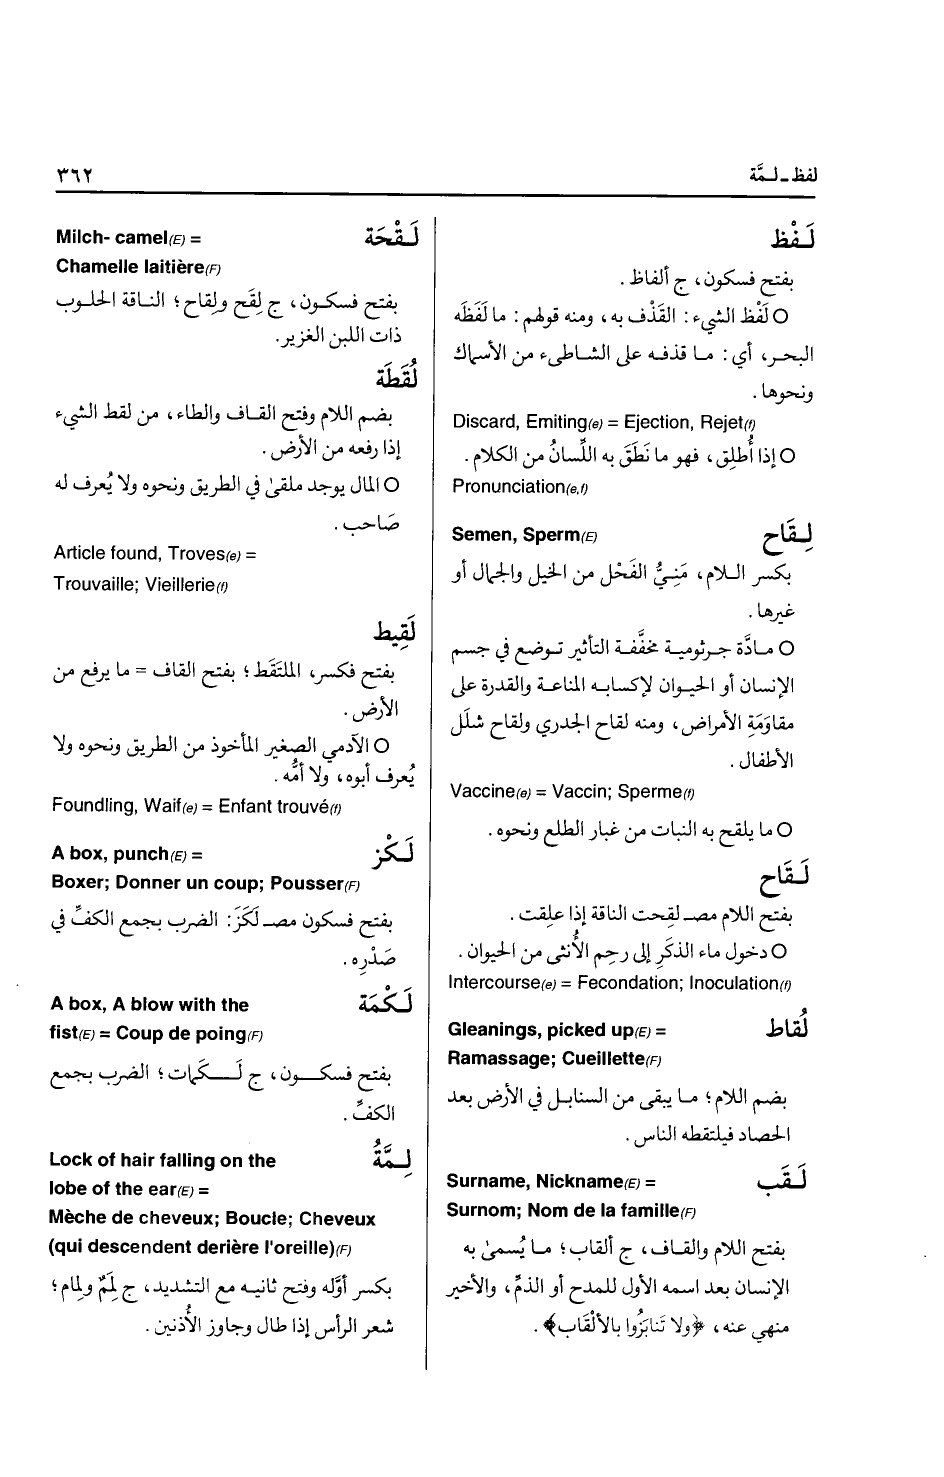 لفظ ـ لـمَّة
٣٦٢
لَـفْظ
بفتح فسكون، ج ألفاظ .
O لَفْظ الشيء : القَذْف به، ومنه قولهم : ما لَفَظَه
البحـر، أي : مـا قذفـه على الشـاطىء من الأسماك
ونحوها .
Discard, Emiting(e) = Ejection, Rejet(f)
O إذا أُطلِق، فهو ما نَطَقَ به اللِّسانُ من الكلام .
Pronunciation(e,f)
لِـقَاح
Semen, Sperm(E)
بكسر الـلام، مَنِيُّ الفَحْل من الخيل والجمال أو
غيرها .
O مـادَّة جـرثوميـة مخفَّفـة التأثير تـوضع في جسم
الإنسـان أو الحيـوان لإكسابـه المناعـة والقدرة على
مقاوَمَةِ الأمراض، ومنه لقاح الجدري ولقاح شلَل
الأطفال .
Vaccine(e) = Vaccin; Sperme(f)
O ما يلقح به النبات من غبار الطلع ونحوه .
لَـقَاح
بفتح اللام مصـ لقِحت الناقة إذا علِقت .
O دخول ماء الذكَرِ إلى رحِمِ الأُنثى من الحيوان .
Intercourse(e) = Fecondation; Inoculation(f)
لُقاط
Gleanings, picked up(E) =
Ramassage; Cueillette(F)
بضم اللام؛ مـا يبقى من السنابـل في الأرض بعد
الحصاد فيلتقطه الناس .
لَـقَب
Surname, Nickname(E) =
Surnom; Nom de la famille(F)
بفتح اللام والقـاف، ج ألقاب؛ مـا يُسمىٰ به
الإنسـان بعد اسمـه الأول للمدح أو الذمِّ، والأخير
منهي عنه، ﴿ولا تَنابَزُوا بالألْقَاب﴾ .
لَـقْحَة
Milch- camel(E) =
Chamelle laitière(F)
بفتح فسكـون، ج لِقَح ولِقاح؛ النـاقة الحلوب
ذات اللبن الغزير.
لُقَطَة
بضم اللام وفتح القـاف والطاء، من لقط الشيء
إذا رفعه من الأرض .
O المال يوجد ملقىٰ في الطريق ونحوه ولا يُعرف له
صَاحب .
Article found, Troves(e) =
Trouvaille; Vieillerie(f)
لَقِيط
بفتح فكسر، الملتَقَط؛ بفتح القاف = ما يرفع من
الأرض .
O الآدمي الصغير المأخوذ من الطريق ونحوه ولا
يُعرف أبوه، ولا أمُّه .
Foundling, Waif(e) = Enfant trouvé(f)
لَـكْز
A box, punch(E) =
Boxer; Donner un coup; Pousser(F)
بفتح فسكون مصـ لَكَزَ : الضرب بجمع الكفِّ في
صَدْرِه .
لَـكْمَة
A box, A blow with the
fist(E) = Coup de poing(F)
بفتح فسكـــون، ج لَـــكَمات؛ الضرب بجمع
الكفِّ .
لِـمَّةُ
Lock of hair falling on the
lobe of the ear(E) =
Mèche de cheveux; Boucle; Cheveux
(qui descendent derière l'oreille)(F)
بكسر أوَّله وفتح ثانيه مع التشديد، ج لِمَمٌ ولِمام؛
شعر الرأس إذا طال وجاوز الأُذنين .